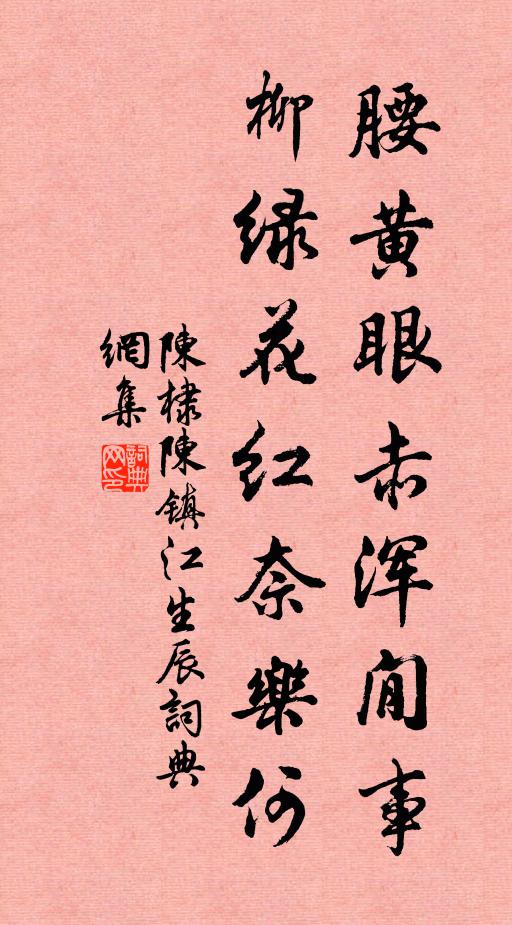 腰黄眼赤浑閒事
柳绿花红奈樂何
陳棣陳镇江生辰詞典
網集
詞典
网印